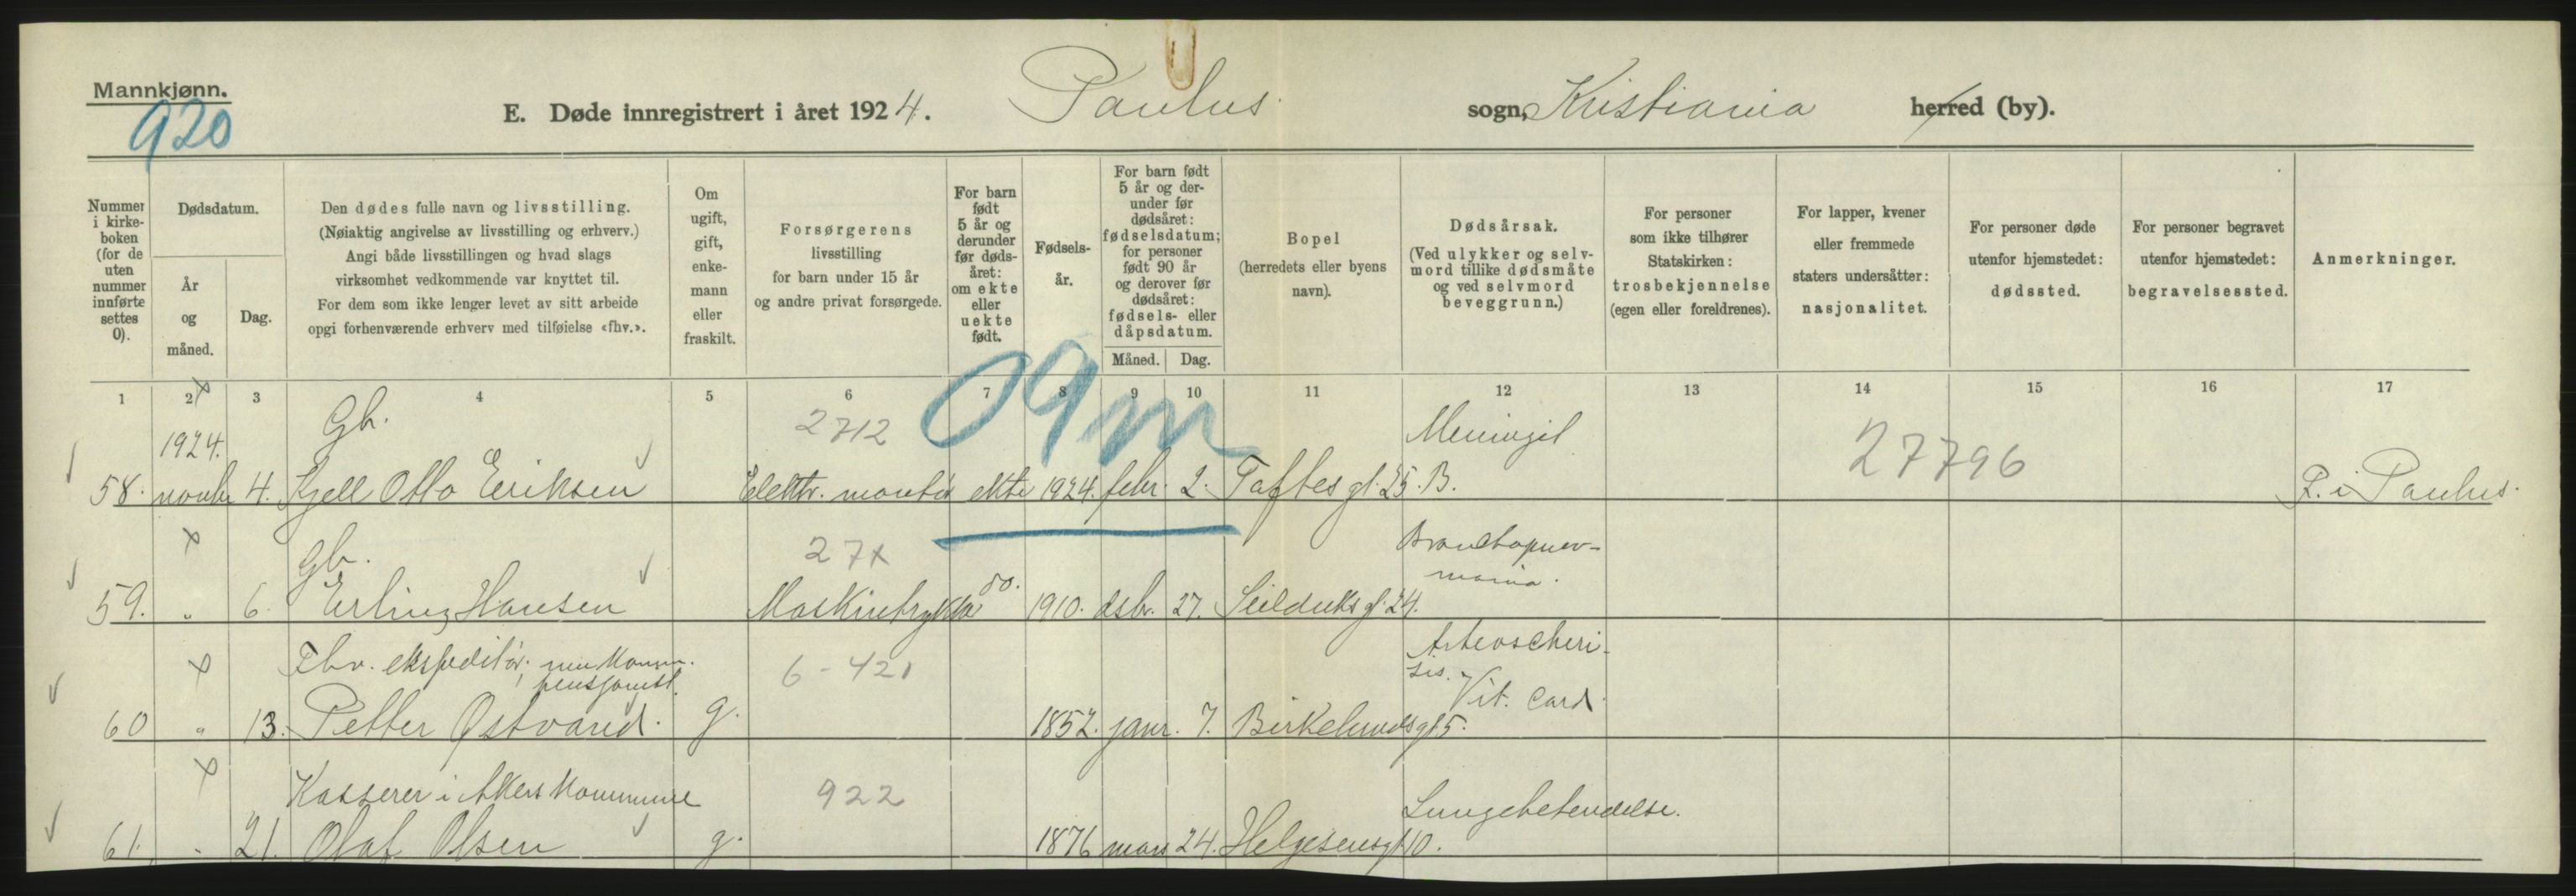 Mannkjønn.
920
E. Døde innregistrert i året 1924. Paulus sogn, Kristiania herred (by).
Nummer i kirke-boken (for de uten nummer innførte settes 0).
Dødsdatum.
År og måned.
Dag.
Den dødes fulle navn og livsstilling.
(Nøiaktig angivelse av livsstilling og erhverv.)
Angi både livsstillingen og hvad slags
virksomhet vedkommende var knyttet til.
For dem som ikke lenger levet av sitt arbeide
opgi forhenværende erhverv med tilføielse «fhv.».
Om ugift, gift, enke-mann eller fraskilt.
Forsørgerens
livsstilling
for barn under 15 år
og andre privat forsørgede.
For barn født 5 år og derunder før døds-året: om ekte eller uekte født.
Fødsels-år.
For barn født 5 år og der-under før dødsåret: fødselsdatum; for personer født 90 år og derover før dødsåret: fødsels- eller dåpsdatum.
Måned. Dag.
Bopel
(herredets eller byens navn).
Dødsårsak.
(Ved ulykker og selv-mord tillike dødsmåte og ved selvmord beveggrunn.)
For personer som ikke tilhører Statskirken: trosbekjennelse (egen eller foreldrenes).
For lapper, kvener eller fremmede staters undersåtter: nasjonalitet.
For personer døde utenfor hjemstedet: dødssted.
For personer begravet utenfor hjemstedet: begravelsessted.
Anmerkninger.
1 2 3 4 5 6 7 8 9 10 11 12 13 14 15 16 17
09m
1924. Gb. 2712 Meningit 27796
58. novbr 4. Kjell Otto Eriksen Elektr. montør ekte 1924. febr. 2. Toftes gt. 25. B. P. i Paulus.
Gb. 27x Bronchopnev-
monia.
59. " 6. Erling Hansen Maskintrykker do. 1910. dsbr. 27. Seilduks gt. 24.
Fhv. ekspeditør; nu komm. pensjonist. 6-421 Arterioscleri-
sis. Vit. Card.
60 " 13. Petter Østvand. g. 1852. janr. 7. Birkelunds gt 5.
Kasserer i Akers Kommune 922 Lungebetendelse.
61. " 21. Olaf Olsen g. 1876 mars 24. Helgesensgt 10.